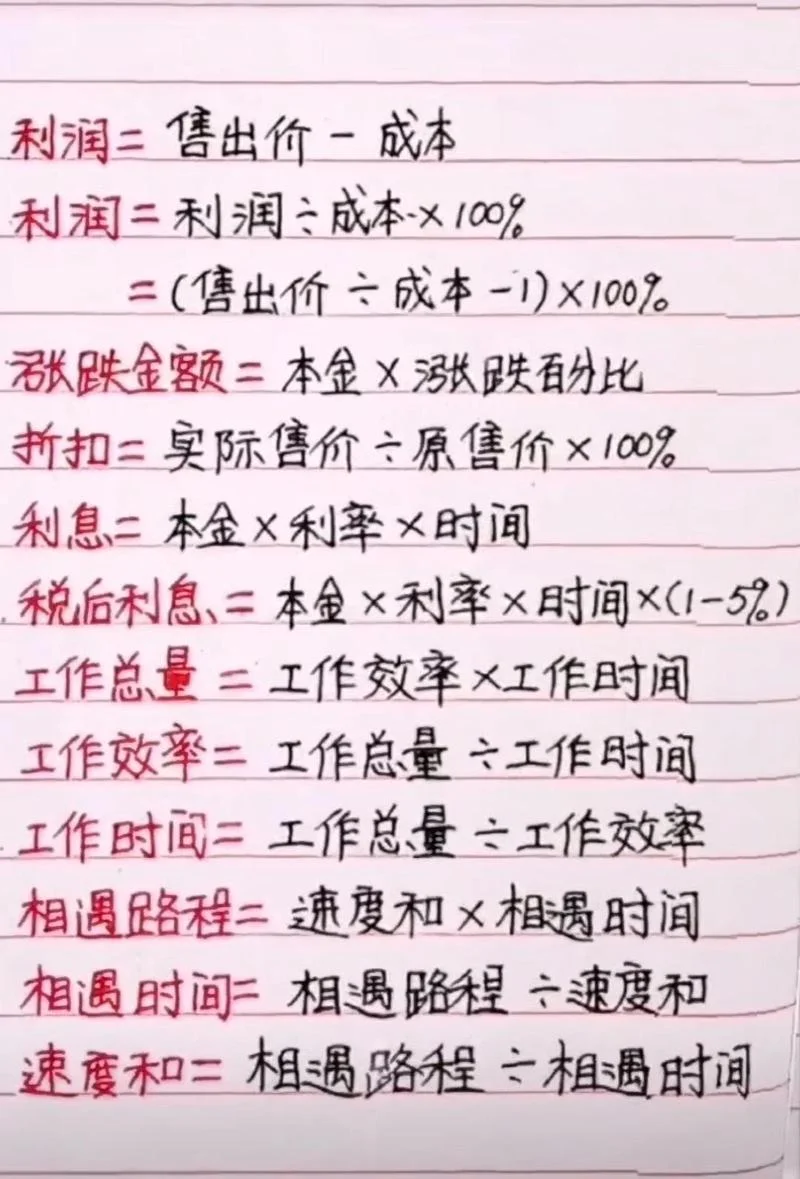 利润=售出价-成本
利润=利润÷成本×100%
=(售出价÷成本-1)×100%
涨跌金额=本金×涨跌百分比
折扣=实际售价÷原售价×100%
利息=本金×利率×时间
税后利息=本金×利率×时间×(1-5%)
工作总量=工作效率×工作时间
工作效率=工作总量÷工作时间
工作时间=工作总量÷工作效率
相遇路程=速度和×相遇时间
相遇时间=相遇路程÷速度和
速度和=相遇路程÷相遇时间